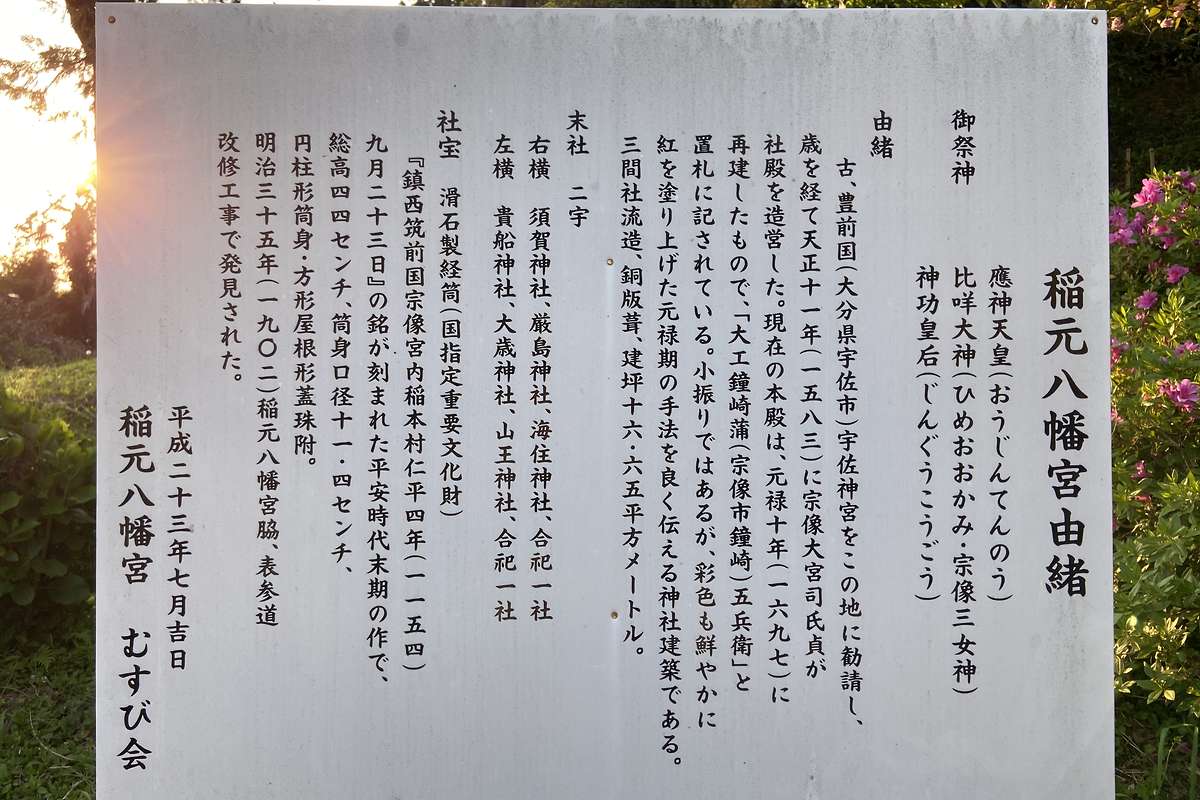 稲元八幡宮由緒
御祭神
應神天皇(おうじんてんのう)
比咩大神(ひめおおかみ・宗像三女神)
神功皇后(じんぐうこうごう)
由緒
古、豊前国(大分県宇佐市)宇佐神宮をこの地に勧請し、
歳を経て天正十一年(一五八三)に宗像大宮司氏貞が
社殿を造営した。現在の本殿は、元禄十年(一六九七)に
再建したもので、「大工鐘崎蒲(宗像市鐘崎)五兵衛」と
置札に記されている。小振りではあるが、彩色も鮮やかに
紅を塗り上げた元禄期の手法を良く伝える神社建築である。
三間社流造、銅版葺、建坪十六・六五平方メートル。
末社 二宇
右横 須賀神社、厳島神社、海住神社、合祀一社
左横 貴船神社、大歳神社、山王神社、合祀一社
社宝 滑石製経筒(国指定重要文化財)
『鎮西筑前国宗像宮内稲本村仁平四年(一一五四)
九月二十三日』の銘が刻まれた平安時代末期の作で、
総高四四センチ、筒身口径十一・四センチ、
円柱形筒身・方形屋根形蓋珠附。
明治三十五年(一九〇二)稲元八幡宮脇、表参道
改修工事で発見された。
平成二十三年七月吉日
稲元八幡宮 むすび会